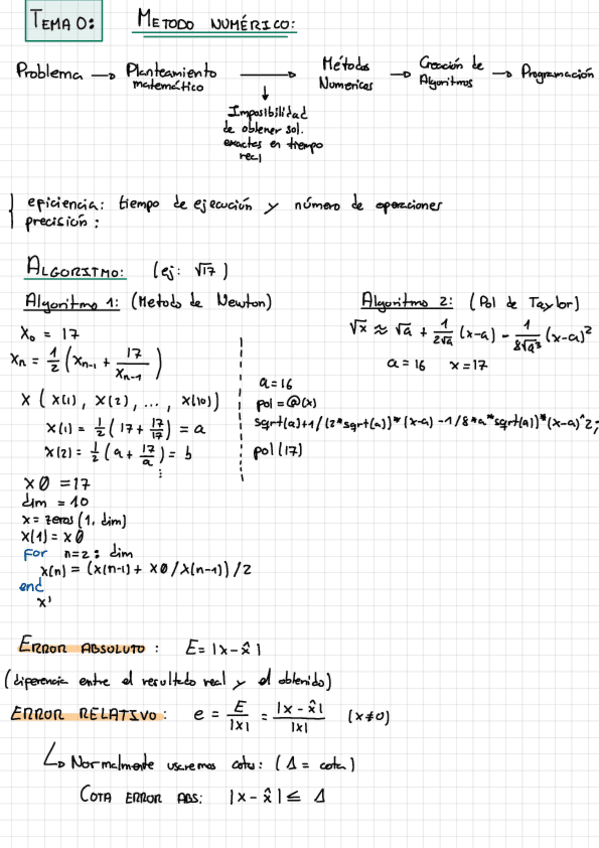 TEMA 0: METODO NUMÉRICO:
Problema → Planteamiento matemático → Métodos Numericos → Creación de Algoritmos → Programación
↓
Imposibilidad
de obtener sol.
exactas en tiempo
real
{ eficiencia: tiempo de ejecución y número de operaciones
precisión:
ALGORITMO: (ej: √17)
Algoritmo 1: (Metodo de Newton)
X₀ = 17
Xn = 1/2 (Xn-1 + 17/Xn-1)
X (X(1), X(2), ..., X(10))
X(1) = 1/2 (17 + 17/17) = a
X(2) = 1/2 (a + 17/a) = b
⋮
X0 = 17
dim = 10
x = zeros(1, dim)
X(1) = X0
for n=2:dim
X(n) = (X(n-1) + X0/X(n-1))/2
end
x'
Algoritmo 2: (Pol de Taylor)
√x ≈ √a + 1/(2√a) (x-a) - 1/(8√a³) (x-a)²
a = 16 x = 17
a = 16
pol = @(x)
sqrt(a)+1/(2*sqrt(a))*(x-a) -1/8*a*sqrt(a))*(x-a)^2;
pol(17)
ERROR ABSOLUTO: E = |x - x̂|
(diferencia entre el resultado real y el obtenido)
ERROR RELATIVO: e = E/|x| = |x - x̂|/|x| (x≠0)
↳ Normalmente usaremos cotas: (Δ = cota)
COTA ERROR ABS: |x - x̂| ≤ Δ